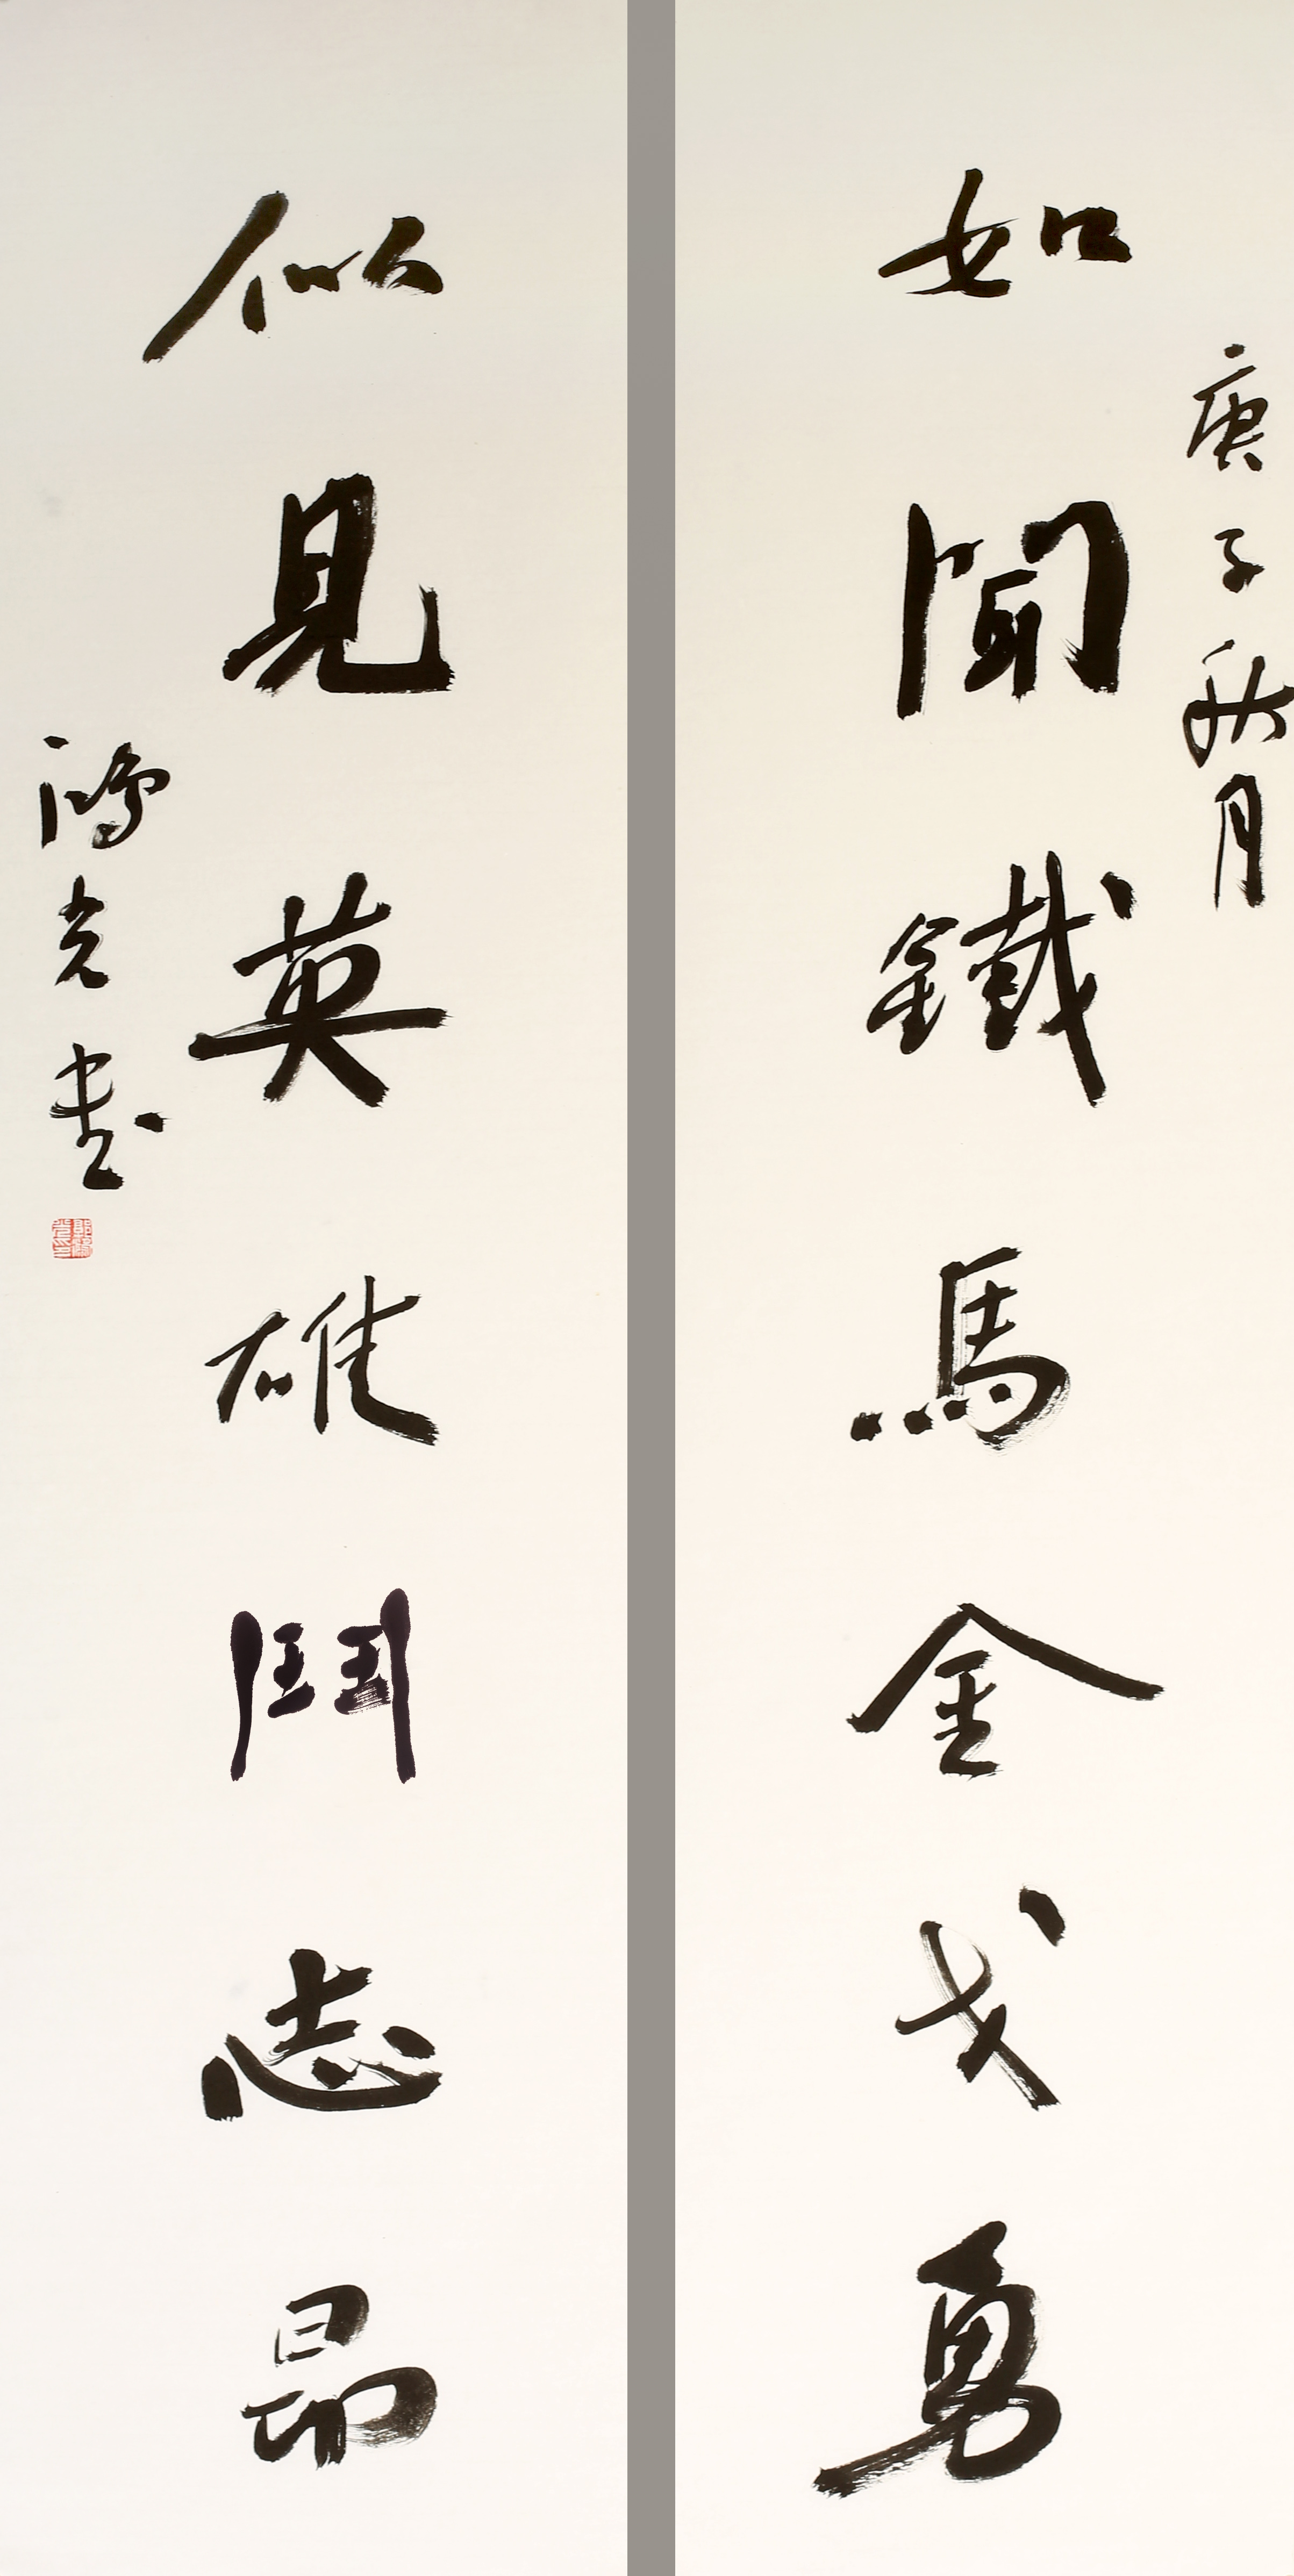 庚子秋月
如聞鐵馬金戈勇
似見英雄鬥志昂
鴻光書